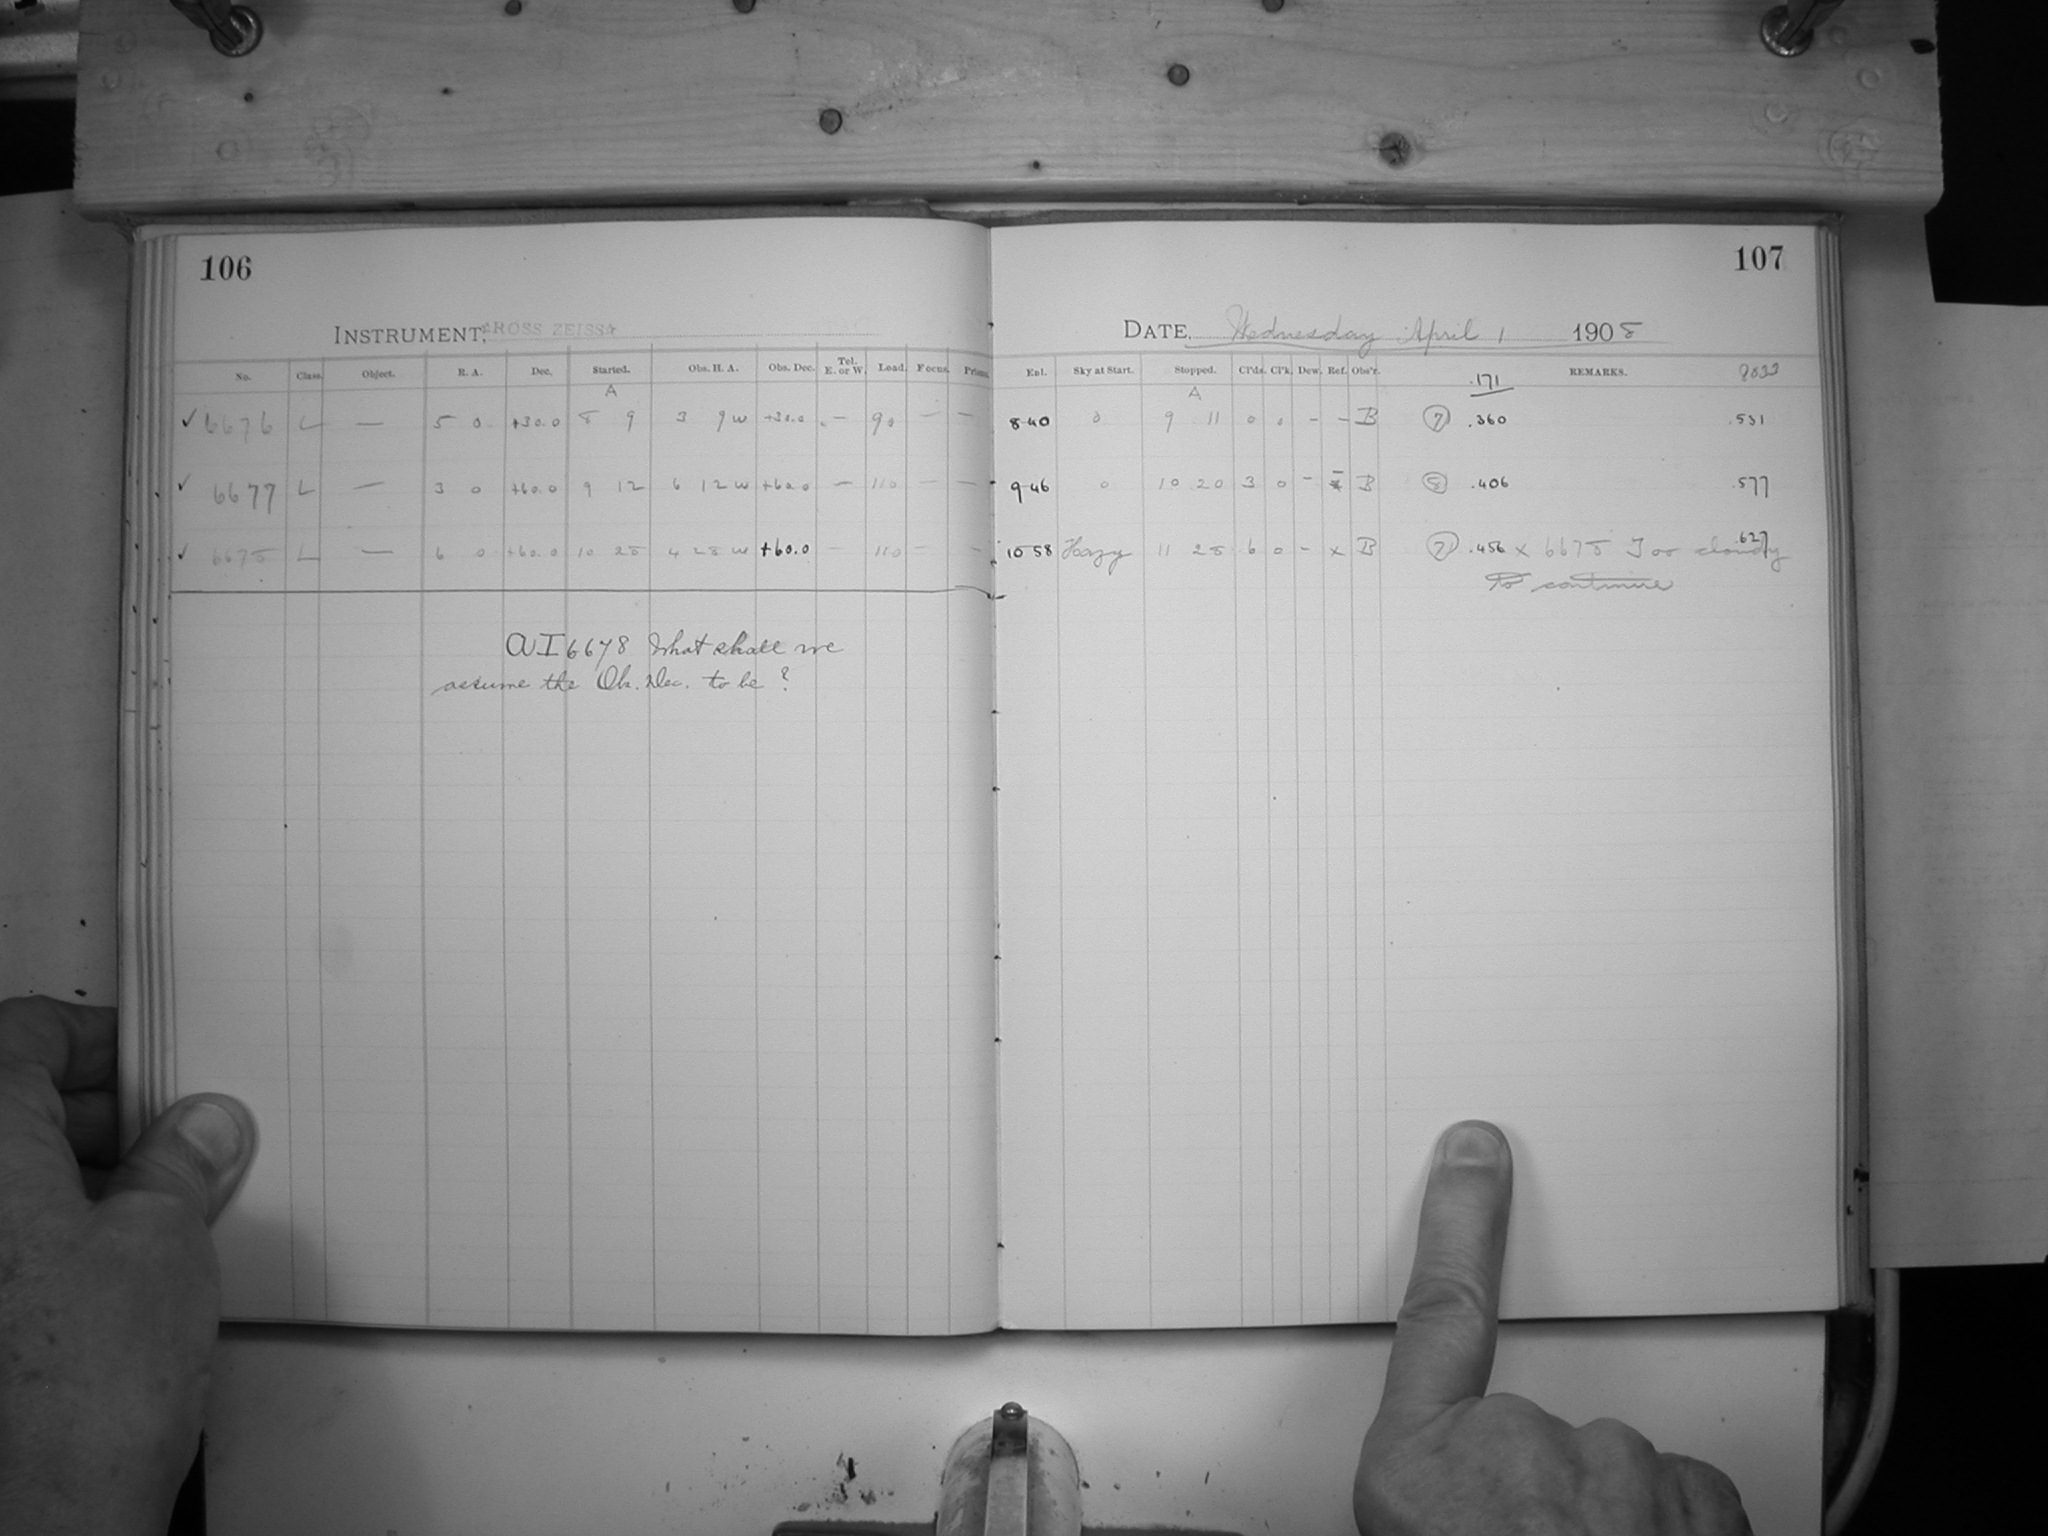 106
INSTRUMENT, ROSS ZEISS
No. Class. Object. R. A. Dec. Started. Obs. H. A. Obs. Dec. Tel. E. or W. Load. Focus. Prisms.
A
✓ 6676 L — 5 0 +30.0 8 9 3 9 W +30.0 — 90 — —
✓ 6677 L — 3 0 +60.0 9 12 6 12 W +60.0 — 110 — —
✓ 6678 L — 6 0 +60.0 10 28 4 28 W +60.0 — 110 — —
6678 What shall we
assume the Ob. Dec. to be?
107
DATE, Wednesday April 1 1908
Enl. Sky at Start. Stopped. Cl'ds. Cl'k. Dew. Ref. Obs'r. REMARKS.
A .171
8 40 0 9 11 0 0 – – B 7 .360 .531
9 46 0 10 20 3 0 – – B 8 .406 .577
10 58 Hazy 11 28 6 0 – x B 7 .456 x 6678 Too cloudy .627
to continue